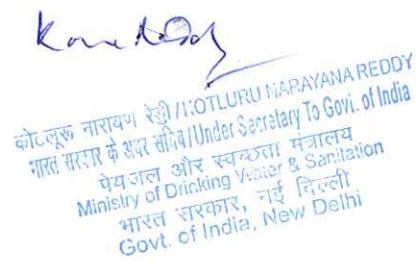 कोटलूरू नारायण रेड्डी/KOTLURU NARAYANA REDDY
भारत सरकार के अवर सचिव/Under Secretary To Govt. of India
पेयजल और स्वच्छता मंत्रालय
Ministry of Drinking Water & Sanitation
भारत सरकार, नई दिल्ली
Govt. of India, New Delhi